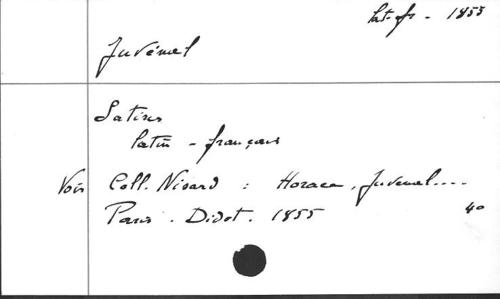 lat-fr - 1855
Juvénal
Satires
latin - français
Voir Coll. Nisard : Horace, Juvenal....
Paris. Didot. 1855 40